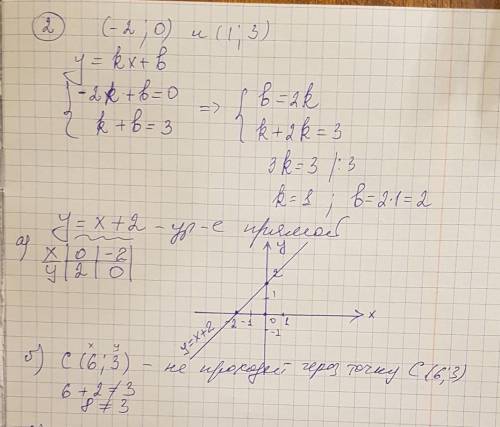 2 (-2; 0) и (1; 3)
y = kx + b
{ -2k + b = 0 => { b = 2k
k + b = 3 k + 2k = 3
3k = 3 | : 3
k = 1 ; b = 2·1 = 2
y = x + 2 - ур-е прямой
а) x | 0 | -2
y | 2 | 0
y
2
1
-2 -1 0 1 x
-1
y = x + 2
x y
б) C (6; 3) - не проходит через точку C (6; 3)
6 + 2 ≠ 3
8 ≠ 3